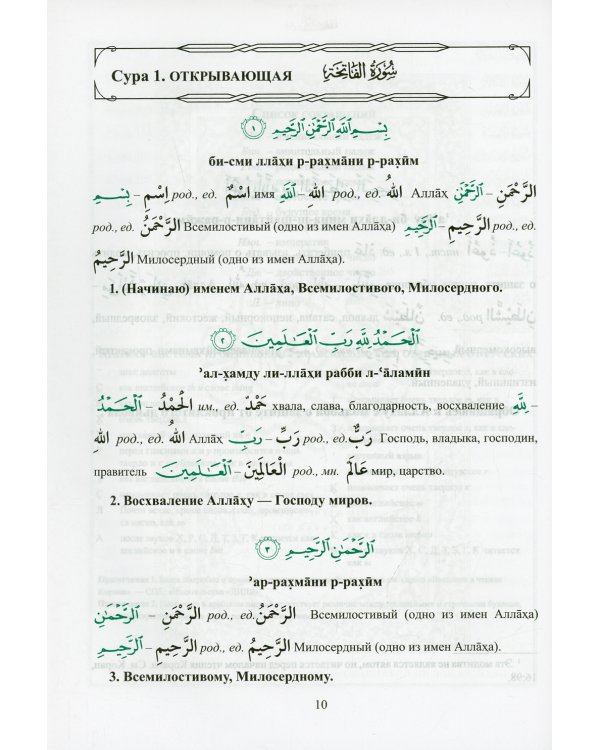 Сура 1. ОТКРЫВАЮЩАЯ سُورَةُ الفَاتِحَةِ
بِسْمِ ٱللَّهِ ٱلرَّحْمَٰنِ ٱلرَّحِيمِ ١
би-сми лла̄хи р-рах̣ма̄ни р-рах̣ӣм
بِسْمِ – اِسْمِ род., ед. اِسْمٌ имя ٱللَّهِ – اللهِ род., ед. اللهُ Алла̄х ٱلرَّحْمَٰنِ – الرَّحْمَنِ
род., ед. الرَّحْمَنُ Всемилостивый (одно из имен Алла̄ха) ٱلرَّحِيمِ – الرَّحِيمِ род., ед.
الرَّحِيمُ Милосердный (одно из имен Алла̄ха).
1. (Начинаю) именем Алла̄ха, Всемилостивого, Милосердного.
ٱلْحَمْدُ لِلَّهِ رَبِّ ٱلْعَٰلَمِينَ ٢
ʾал-х̣амду ли-лла̄хи рабби л-ʿа̄ламӣн
ٱلْحَمْدُ – الْحَمْدُ им., ед. حَمْدٌ хвала, слава, благодарность, восхваление لِلَّهِ –
اللهِ род., ед. اللهُ Алла̄х رَبِّ – رَبِّ род., ед. رَبٌّ Господь, владыка, господин,
правитель ٱلْعَٰلَمِينَ – الْعَالَمِينَ род., мн. عَالَمٌ мир, царство.
2. Восхваление Алла̄ху — Господу миров.
ٱلرَّحْمَٰنِ ٱلرَّحِيمِ ٣
ʾар-рах̣ма̄ни р-рах̣ӣм
ٱلرَّحْمَٰنِ – الرَّحْمَنِ род., ед. الرَّحْمَنُ Всемилостивый (одно из имен Алла̄ха)
ٱلرَّحِيمِ – الرَّحِيمِ род., ед. الرَّحِيمُ Милосердный (одно из имен Алла̄ха).
3. Всемилостивому, Милосердному.
10